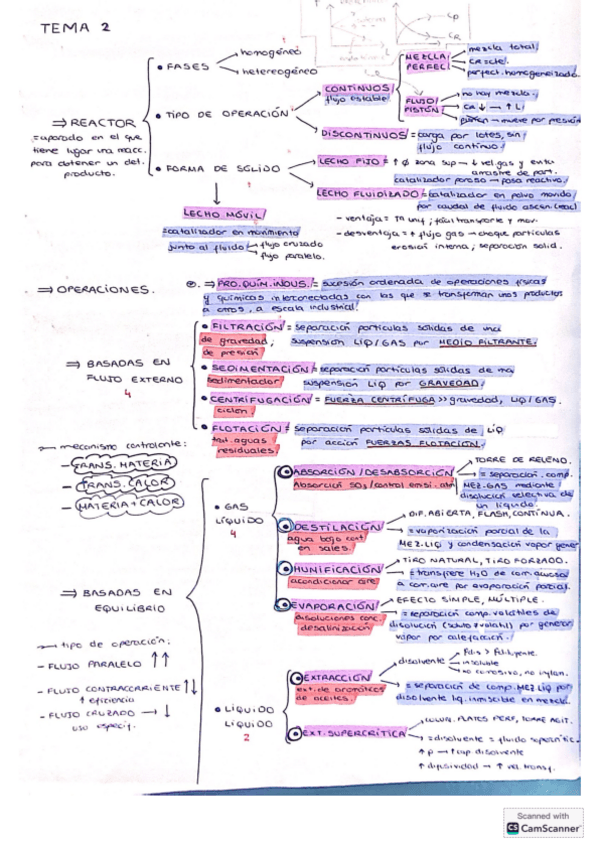 TEMA 2
CP
CR
⇒ REACTOR
= aparado en el que
tiene lugar una reacc.
para obtener un det.
producto.
• FASES
homogéneo
heterogéneo
• TIPO DE OPERACIÓN
CONTINUOS /
flujo estable
MEZCLA
PERFEC /
mezcla total /
CR = cte /
perfect. homogeneizado.
FLUJO
PISTÓN /
no hay mezcla /
CR ↓ → ↑ L /
pistón → mueve por presión
DISCONTINUOS / = carga por lotes, sin
flujo continuo /
• FORMA DE SÓLIDO
LECHO FIJO / = ↑ Ø zona sup → ↓ vel. gas y evitar
arrastre de part.
catalizador poroso → poso reactivo /
LECHO FLUIDIZADO / = catalizador en polvo movido
por caudal de fluido ascen. (reac)
- ventaja = Tª unif ; fácil transporte y mov.
- desventaja = ↑ flujo gas → choque partículas
erosión interna ; separación solid.
LECHO MÓVIL /
= catalizador en movimiento
junto al fluido
flujo cruzado
flujo paralelo.
⇒ OPERACIONES.
⇒ PRO. QUÍM. INDUS. / = sucesión ordenada de operaciones físicas
y químicas interconectadas con las que se transforman unos productos
a otros, a escala industrial /
⇒ BASADAS EN
FLUJO EXTERNO
4
• FILTRACIÓN / = separación partículas sólidas de una
de gravedad ; suspensión LIQ / GAS por MEDIO FILTRANTE.
de presión /
• SEDIMENTACIÓN / = separación partículas sólidas de una
sedimentador suspensión LIQ por GRAVEDAD /
• CENTRIFUGACIÓN / = FUERZA CENTRÍFUGA >> gravedad, LIQ / GAS.
ciclon /
• FLOTACIÓN / = separación partículas sólidas de LIQ
trat. aguas por acción FUERZAS FLOTACIÓN /
residuales.
→ mecanismo controlante:
- TRANS. MATERIA
- TRANS. CALOR
- MATERIA + CALOR
⇒ BASADAS EN
EQUILIBRIO
→ tipo de operación:
- FLUJO PARALELO ↑↑
- FLUJO CONTRACORRIENTE ↑↓
↑ eficiencia
- FLUJO CRUZADO → ↓
uso específ.
• GAS
LÍQUIDO
4
ABSORCIÓN / DESABSORCIÓN
Absorción SO₂ / control emsi. atm
TORRE DE RELLENO.
= separación comp.
MEZ. GAS mediante
disolución selectiva de
un líquido.
DESTILACIÓN /
en sales.
DIF. ABIERTA, FLASH, CONTINUA.
= vaporización parcial de la
MEZ. LIQ y condensación vapor gener
HUMIFICACIÓN /
acondicionar aire
TIRO NATURAL, TIRO FORZADO.
= transfiere H₂O de corr. acuosa
a corr. aire por evaporación parcial.
EVAPORACIÓN /
disoluciones conc.
desalinización
EFECTO SIMPLE, MÚLTIPLE.
= separación comp. volátiles de
disolución (soluto ≠ volátil) por generar
vapor por calefacción /
• LÍQUIDO
LÍQUIDO
2
EXTRACCIÓN /
ext. de aromáticos
de aceites.
disolvente
insoluble
no corrosivo, no inflam.
= separación de comp. MEZ LIQ por
disolvente liq. inmiscible en mezcla.
EXT. SUPERCRÍTICA
COLUM. PLATOS PERF, TORRE AGIT.
= disolvente = fluido supercrític.
↑ p → ↑ cap. disolvente
↑ difusividad → ↑ vel. transf.
Scanned with
CS CamScanner